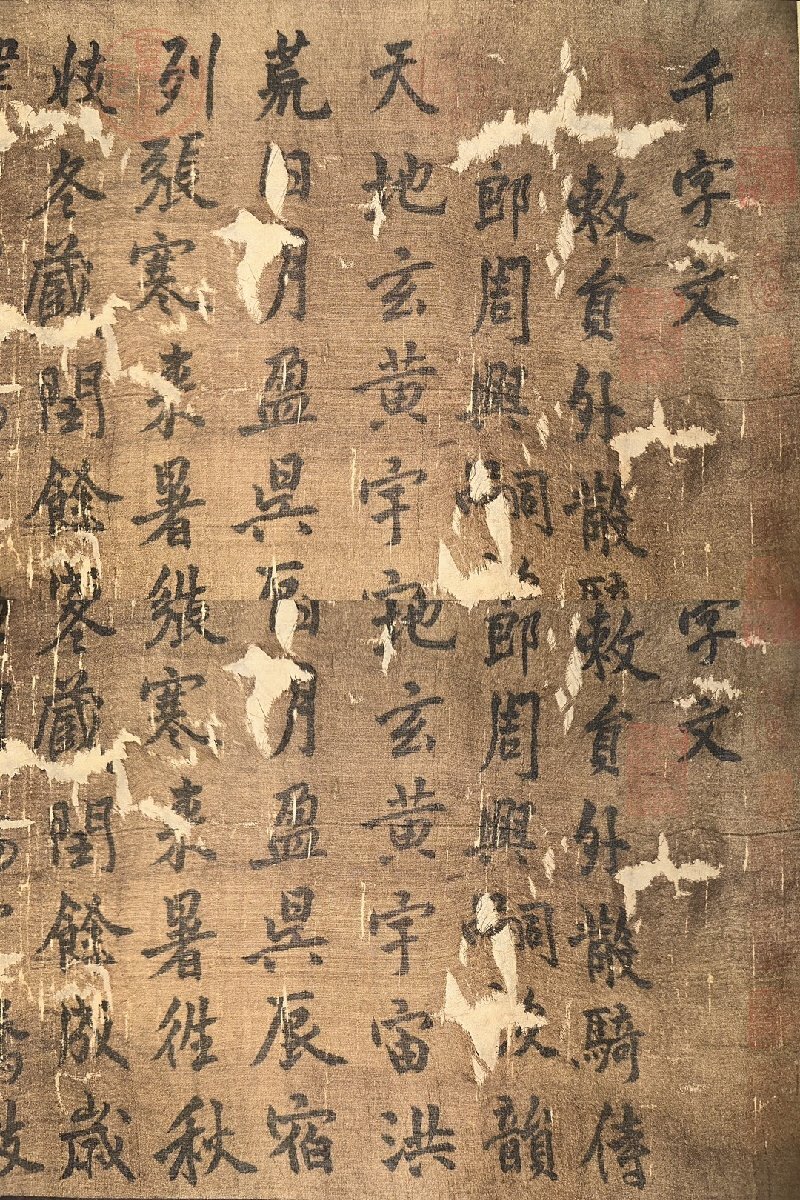 千字文字文
敕員外散敕員外散騎侍
郎周興嗣郎周興嗣次韻
天地玄黃宇地玄黃宇宙洪
荒日月盈昃日月盈昃辰宿
列張寒来暑張寒来暑徃秋
收冬藏閏餘冬藏閏餘成歲